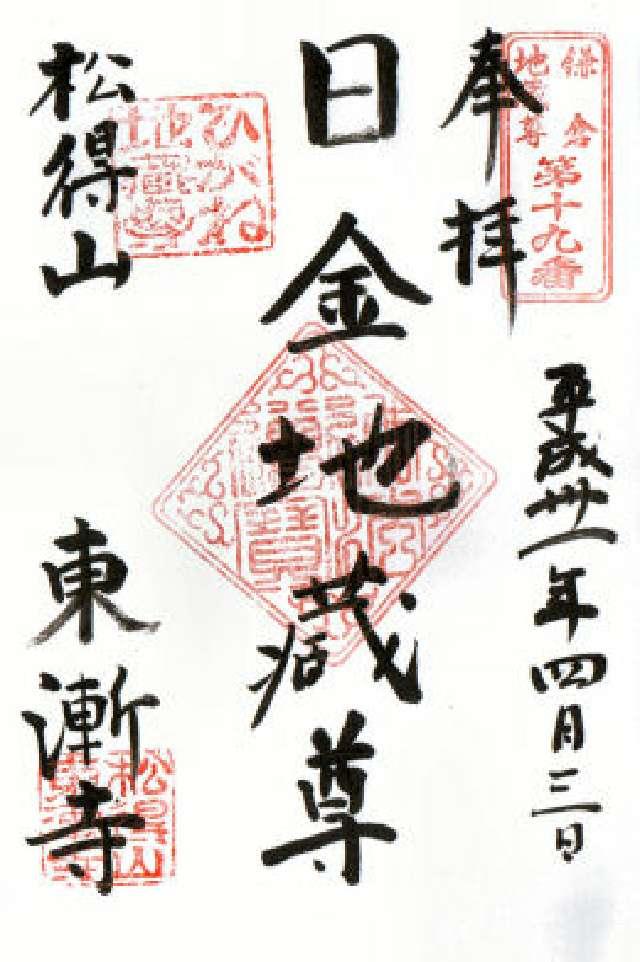 鎌倉
地蔵尊
第十九番
奉拝
平成卅一年四月三日
日金地蔵尊
ひがね
地蔵尊
松得山
東漸寺